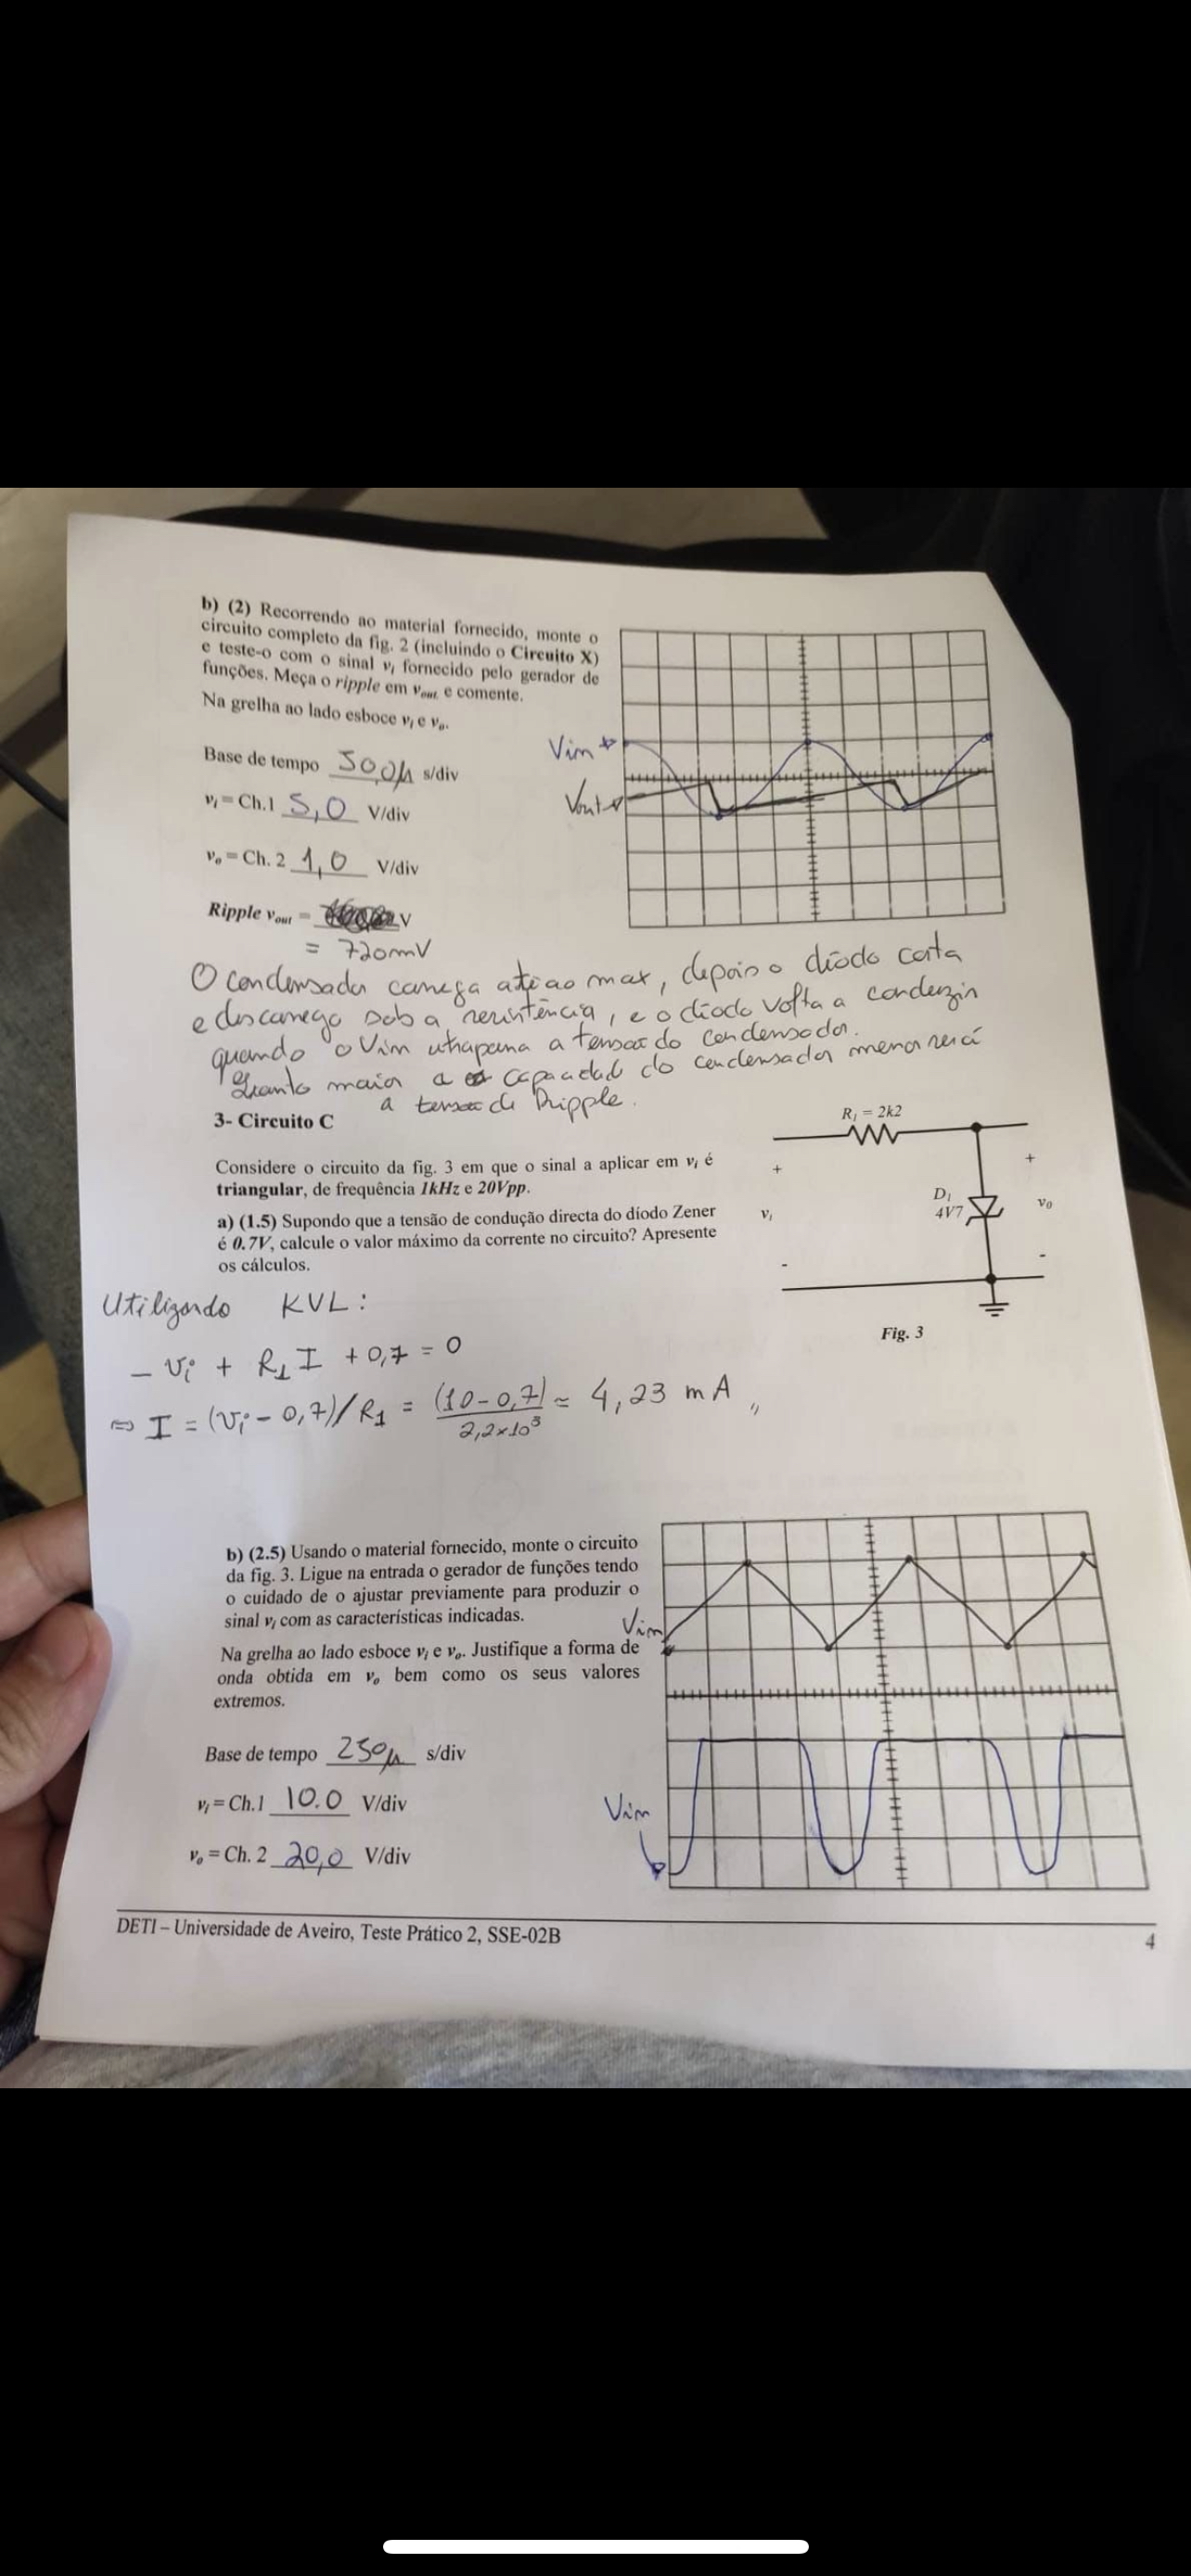 b) (2) Recorrendo ao material fornecido, monte o
circuito completo da fig. 2 (incluindo o Circuito X)
e teste-o com o sinal vi fornecido pelo gerador de
funções. Meça o ripple em vout e comente.
Na grelha ao lado esboce vi e vo.
Vin
Base de tempo 50,0µ s/div
Vout
vi = Ch.1 5,0 V/div
vo = Ch. 2 1,0 V/div
Ripple vout = V
= 720mV
O condensador carrega até ao max, depois o díodo corta
e descarrega sob a resistência, e o díodo volta a conduzir
quando o Vin ultrapassa a tensao do condensador.
Quanto maior a capacidade do condensador menor será
a tensao de Ripple.
3- Circuito C
R1 = 2k2
Considere o circuito da fig. 3 em que o sinal a aplicar em vi é
triangular, de frequência 1kHz e 20Vpp.
+
+
a) (1.5) Supondo que a tensão de condução directa do díodo Zener
é 0.7V, calcule o valor máximo da corrente no circuito? Apresente
os cálculos.
vi
D1
4V7
vo
-
-
Fig. 3
Utilizando KVL:
- vi + R1 I + 0,7 = 0
⇔ I = (vi - 0,7)/R1 = (10-0,7)/2,2×10³ ≃ 4,23 mA //
b) (2.5) Usando o material fornecido, monte o circuito
da fig. 3. Ligue na entrada o gerador de funções tendo
o cuidado de o ajustar previamente para produzir o
sinal vi com as características indicadas.
Vin
Na grelha ao lado esboce vi e vo. Justifique a forma de
onda obtida em vo bem como os seus valores
extremos.
Base de tempo 250µ s/div
vi = Ch.1 10.0 V/div
Vin
vo = Ch. 2 20,0 V/div
DETI – Universidade de Aveiro, Teste Prático 2, SSE-02B
4